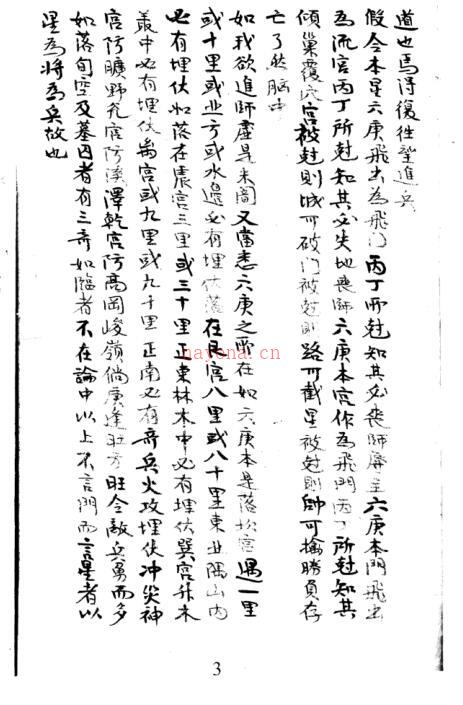 道也焉得復往望進兵
假令本星六庚飛出為飛門丙丁所尅知其必喪師屏主六庚本門飛出
為流宫丙丁所尅知其必失地喪師六庚本宫作為飛門丙丁所尅知其
傾巢覆穴宫被尅則城可破門被尅則路可截星被尅則帥可擒勝負存
亡了然腦中
如我欲進師虛是未阁又當悉六庚之所在如六庚本是落坎宫遇一里
或十里或北方或水邊必有埋伏落在艮宫八里或八十里東北隅山内
必有埋伏如落在震宫三里或三十里正東林木中必有埋伏巽宫升木
叢中必有埋伏离宫或九里或九十里正南必有奇兵火攻埋伏冲
宫防曠野兌宫防溪澤乾宫防高岡峻嶺倘庚逢旺方旺令敵兵勇而多
如落旬空及墓囚者有三奇如臨者不在論中以上不言門而言星者以
星為將為兵故也
nayona.cn
3